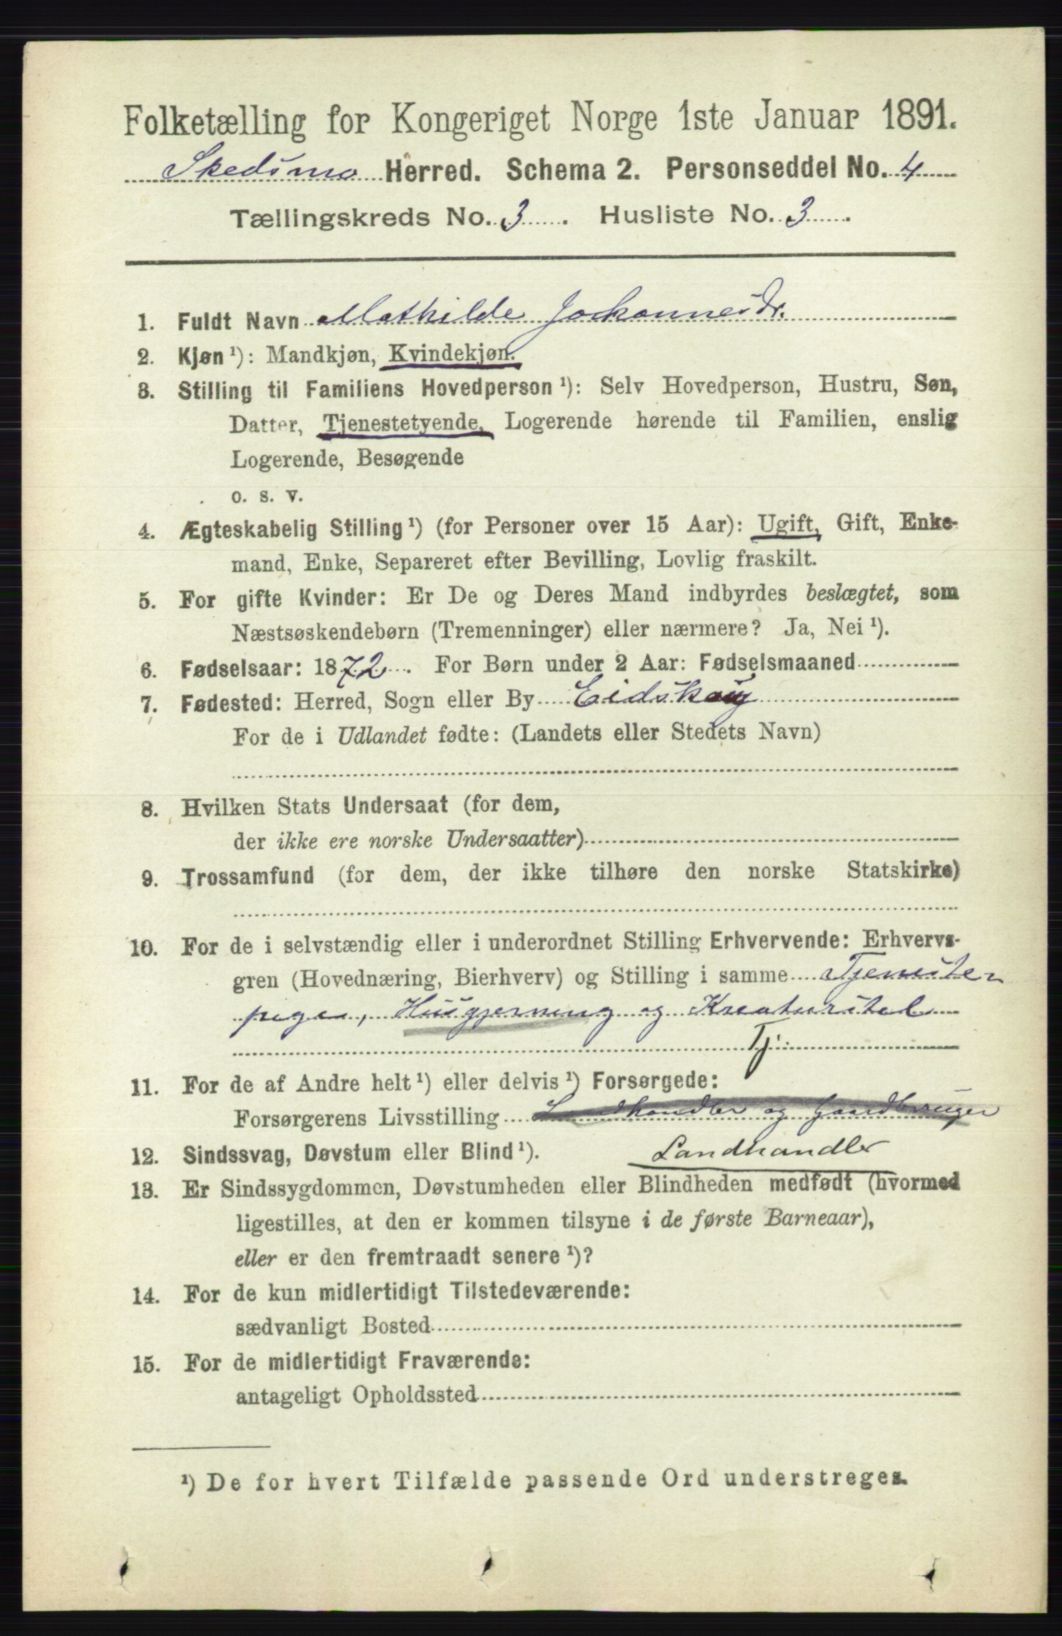 Folketælling for Kongeriget Norge 1ste Januar 1891.
Skedsmo Herred. Schema 2. Personseddel No. 4
Tællingskreds No. 3. Husliste No. 3.
1. Fuldt Navn Mathilde Johannesdr.
2. Kjøn ¹): Mandkjøn, Kvindekjøn.
3. Stilling til Familiens Hovedperson ¹): Selv Hovedperson, Hustru, Søn,
Datter, Tjenestetyende, Logerende hørende til Familien, enslig
Logerende, Besøgende
o. s. v.
4. Ægteskabelig Stilling ¹) (for Personer over 15 Aar): Ugift, Gift, Enke-
mand, Enke, Separeret efter Bevilling, Lovlig fraskilt.
5. For gifte Kvinder: Er De og Deres Mand indbyrdes beslægtet, som
Næstsøskendebørn (Tremenninger) eller nærmere? Ja, Nei ¹).
6. Fødselsaar: 1872. For Børn under 2 Aar: Fødselsmaaned
7. Fødested: Herred, Sogn eller By Eidskoug
For de i Udlandet fødte: (Landets eller Stedets Navn)
8. Hvilken Stats Undersaat (for dem,
der ikke ere norske Undersaatter)
9. Trossamfund (for dem, der ikke tilhøre den norske Statskirke)
10. For de i selvstændig eller i underordnet Stilling Erhvervende: Erhvervs-
gren (Hovednæring, Bierhverv) og Stilling i samme Tjeneste-
pige, Husgjerning og Kreaturstel
Tj.
11. For de af Andre helt ¹) eller delvis ¹) Forsørgede:
Forsørgerens Livsstilling Landhandler og Gaardbruger
12. Sindssvag, Døvstum eller Blind ¹). Landhandler
13. Er Sindssygdommen, Døvstumheden eller Blindheden medfødt (hvormed
ligestilles, at den er kommen tilsyne i de første Barneaar),
eller er den fremtraadt senere ¹)?
14. For de kun midlertidigt Tilstedeværende:
sædvanligt Bosted
15. For de midlertidigt Fraværende:
antageligt Opholdssted
¹) De for hvert Tilfælde passende Ord understreges.